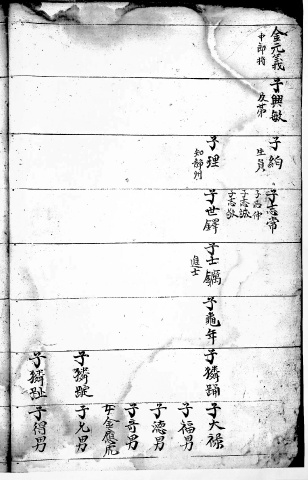 金元義
中郎将
子興敏
及第
子絢
生員
子理
知静州
子志常
子志仲
子志誠
子志敬
子世鐸
子士鐫
進士
子龜年
子獜踊
子獜踨
子獜趾
子大祿
子福男
子德男
子奇男
女金應虎
子允男
子得男